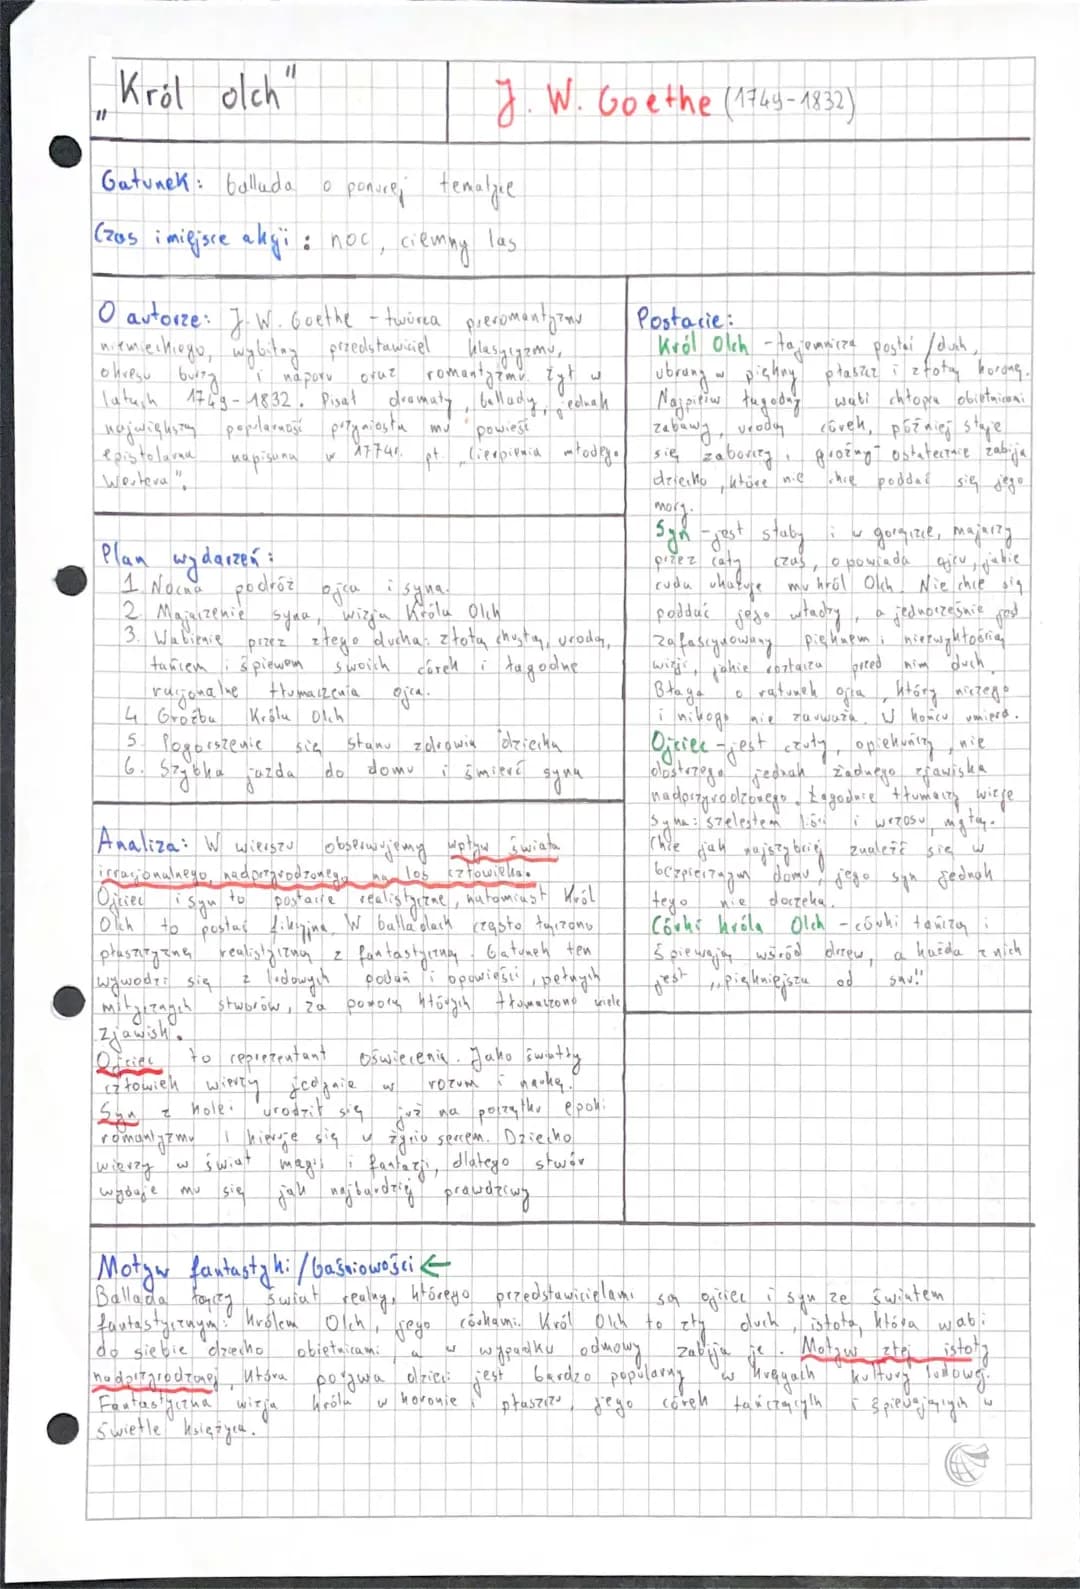 „Król olch"
J. W. Goethe (1749-1832)
Gatunek: ballada o ponurej tematyce
Czas i miejsce akcji: noc, ciemny las
O autorze: J. W. Goethe - twórca preromantyzmu
niemieckiego, wybitny przedstawiciel klasycyzmu,
okresu burzy i naporu oraz romantyzmu. Żył w
latach 1749-1832. Pisał dramaty, ballady, jednak
największą popularność przyniosła mu powieść
epistolarna napisana w 1774r. pt. „Cierpienia młodego
Wertera".
Plan wydarzeń:
1. Nocna podróż ojca i syna.
2. Majaczenie syna, wizja Króla Olch
3. Wabienie przez złego ducha: złotą chustą, urodą,
tańcem i śpiewem swoich córek i łagodne
racjonalne tłumaczenia ojca.
4. Groźba Króla Olch
5. Pogorszenie się stanu zdrowia dziecka
6. Szybka jazda do domu i śmierć syna
Analiza: W wierszu obserwujemy wpływ świata
irracjonalnego, nadprzyrodzonego na los człowieka.
Ojciec i syn to postacie realistyczne, natomiast Król
Olch to postać fikcyjna. W balladach często łączono
płaszczyznę realistyczną z fantastyczną. Gatunek ten
wywodzi się z ludowych podań i opowieści, pełnych
mitycznych stworów, za pomocą których tłumaczono wiele
zjawisk.
Ojciec to reprezentant oświecenia. Jako światły
człowiek wierzy jedynie w rozum i naukę.
Syn z kolei urodził się już na początku epoki
romantyzmu i kieruje się w życiu sercem. Dziecko
wierzy w świat magii i fantazji, dlatego stwór
wydaje mu się jak najbardziej prawdziwy
Postacie:
Król Olch - tajemnicza postać/duch,
ubrany w piękny płaszcz i złotą koronę.
Najpierw łagodny wabi chłopca obietnicami
zabawy, urodą córek, później staje
się zaborczy, groźny - ostatecznie zabija
dziecko, które nie chce poddać się jego
mocy.
Syn - jest słaby i w gorączce, majaczy
przez cały czas, opowiada ojcu, jakie
cuda ukazuje mu król Olch. Nie chce się
poddać jego władzy, a jednocześnie jest
zafascynowany pięknem i niezwykłością
wizji, jakie roztacza przed nim duch.
Błaga o ratunek ojca, który niczego
i nikogo nie zauważa. W końcu umiera.
Ojciec - jest czuły, opiekuńczy, nie
dostrzega jednak żadnego zjawiska
nadprzyrodzonego. Łagodnie tłumaczy wizje
syna: szelestem liści i wrzosu, mgłą.
Chce jak najszybciej znaleźć się w
bezpiecznym domu, jego syn jednak
tego nie doczeka.
Córki króla Olch - córki tańczą i
śpiewają wśród drzew, a każda z nich
jest „piękniejsza od snu."
Motyw fantastyki/baśniowości ←
Ballada łączy świat realny, którego przedstawicielami są ojciec i syn ze światem
fantastycznym: królem Olch, jego córkami. Król Olch to zły duch, istota, która wabi
do siebie dziecko obietnicami, a w wypadku odmowy zabija je. Motyw złej istoty
nadprzyrodzonej, która porywa dzieci jest bardzo popularny w kręgach kultury ludowej.
Fantastyczna wizja króla w koronie i płaszczu, jego córek tańczących i śpiewających w
świetle księżyca.